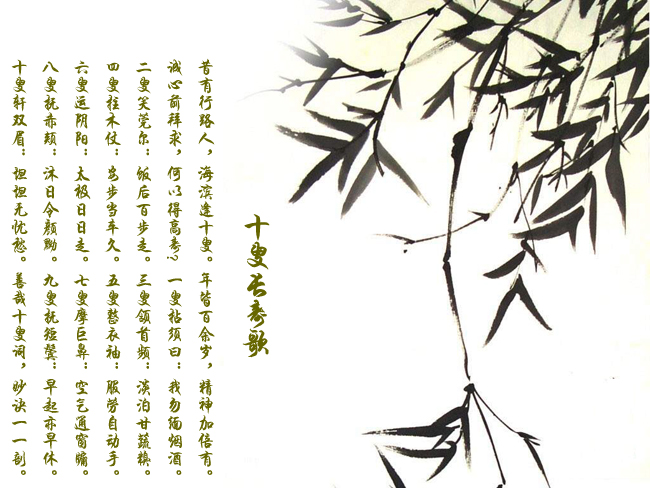 十叟长寿歌
昔有行路人，海滨逢十叟。年皆百余岁，精神加倍有。
诚心前拜求，何以得高寿？一叟拈须曰：我勿缅烟酒。
二叟笑莞尔：饭后百步走。三叟颔首频：淡泊甘蔬糗。
四叟拄木仗：安步当车久。五叟整衣袖：服劳自动手。
六叟运阴阳：太极日日走。七叟摩巨鼻：空气通窗牖。
八叟抚赤颊：沐日令颜黝。九叟抚短鬓：早起亦早休。
十叟轩双眉：坦坦无忧愁。善哉十叟词，妙诀一一剖。